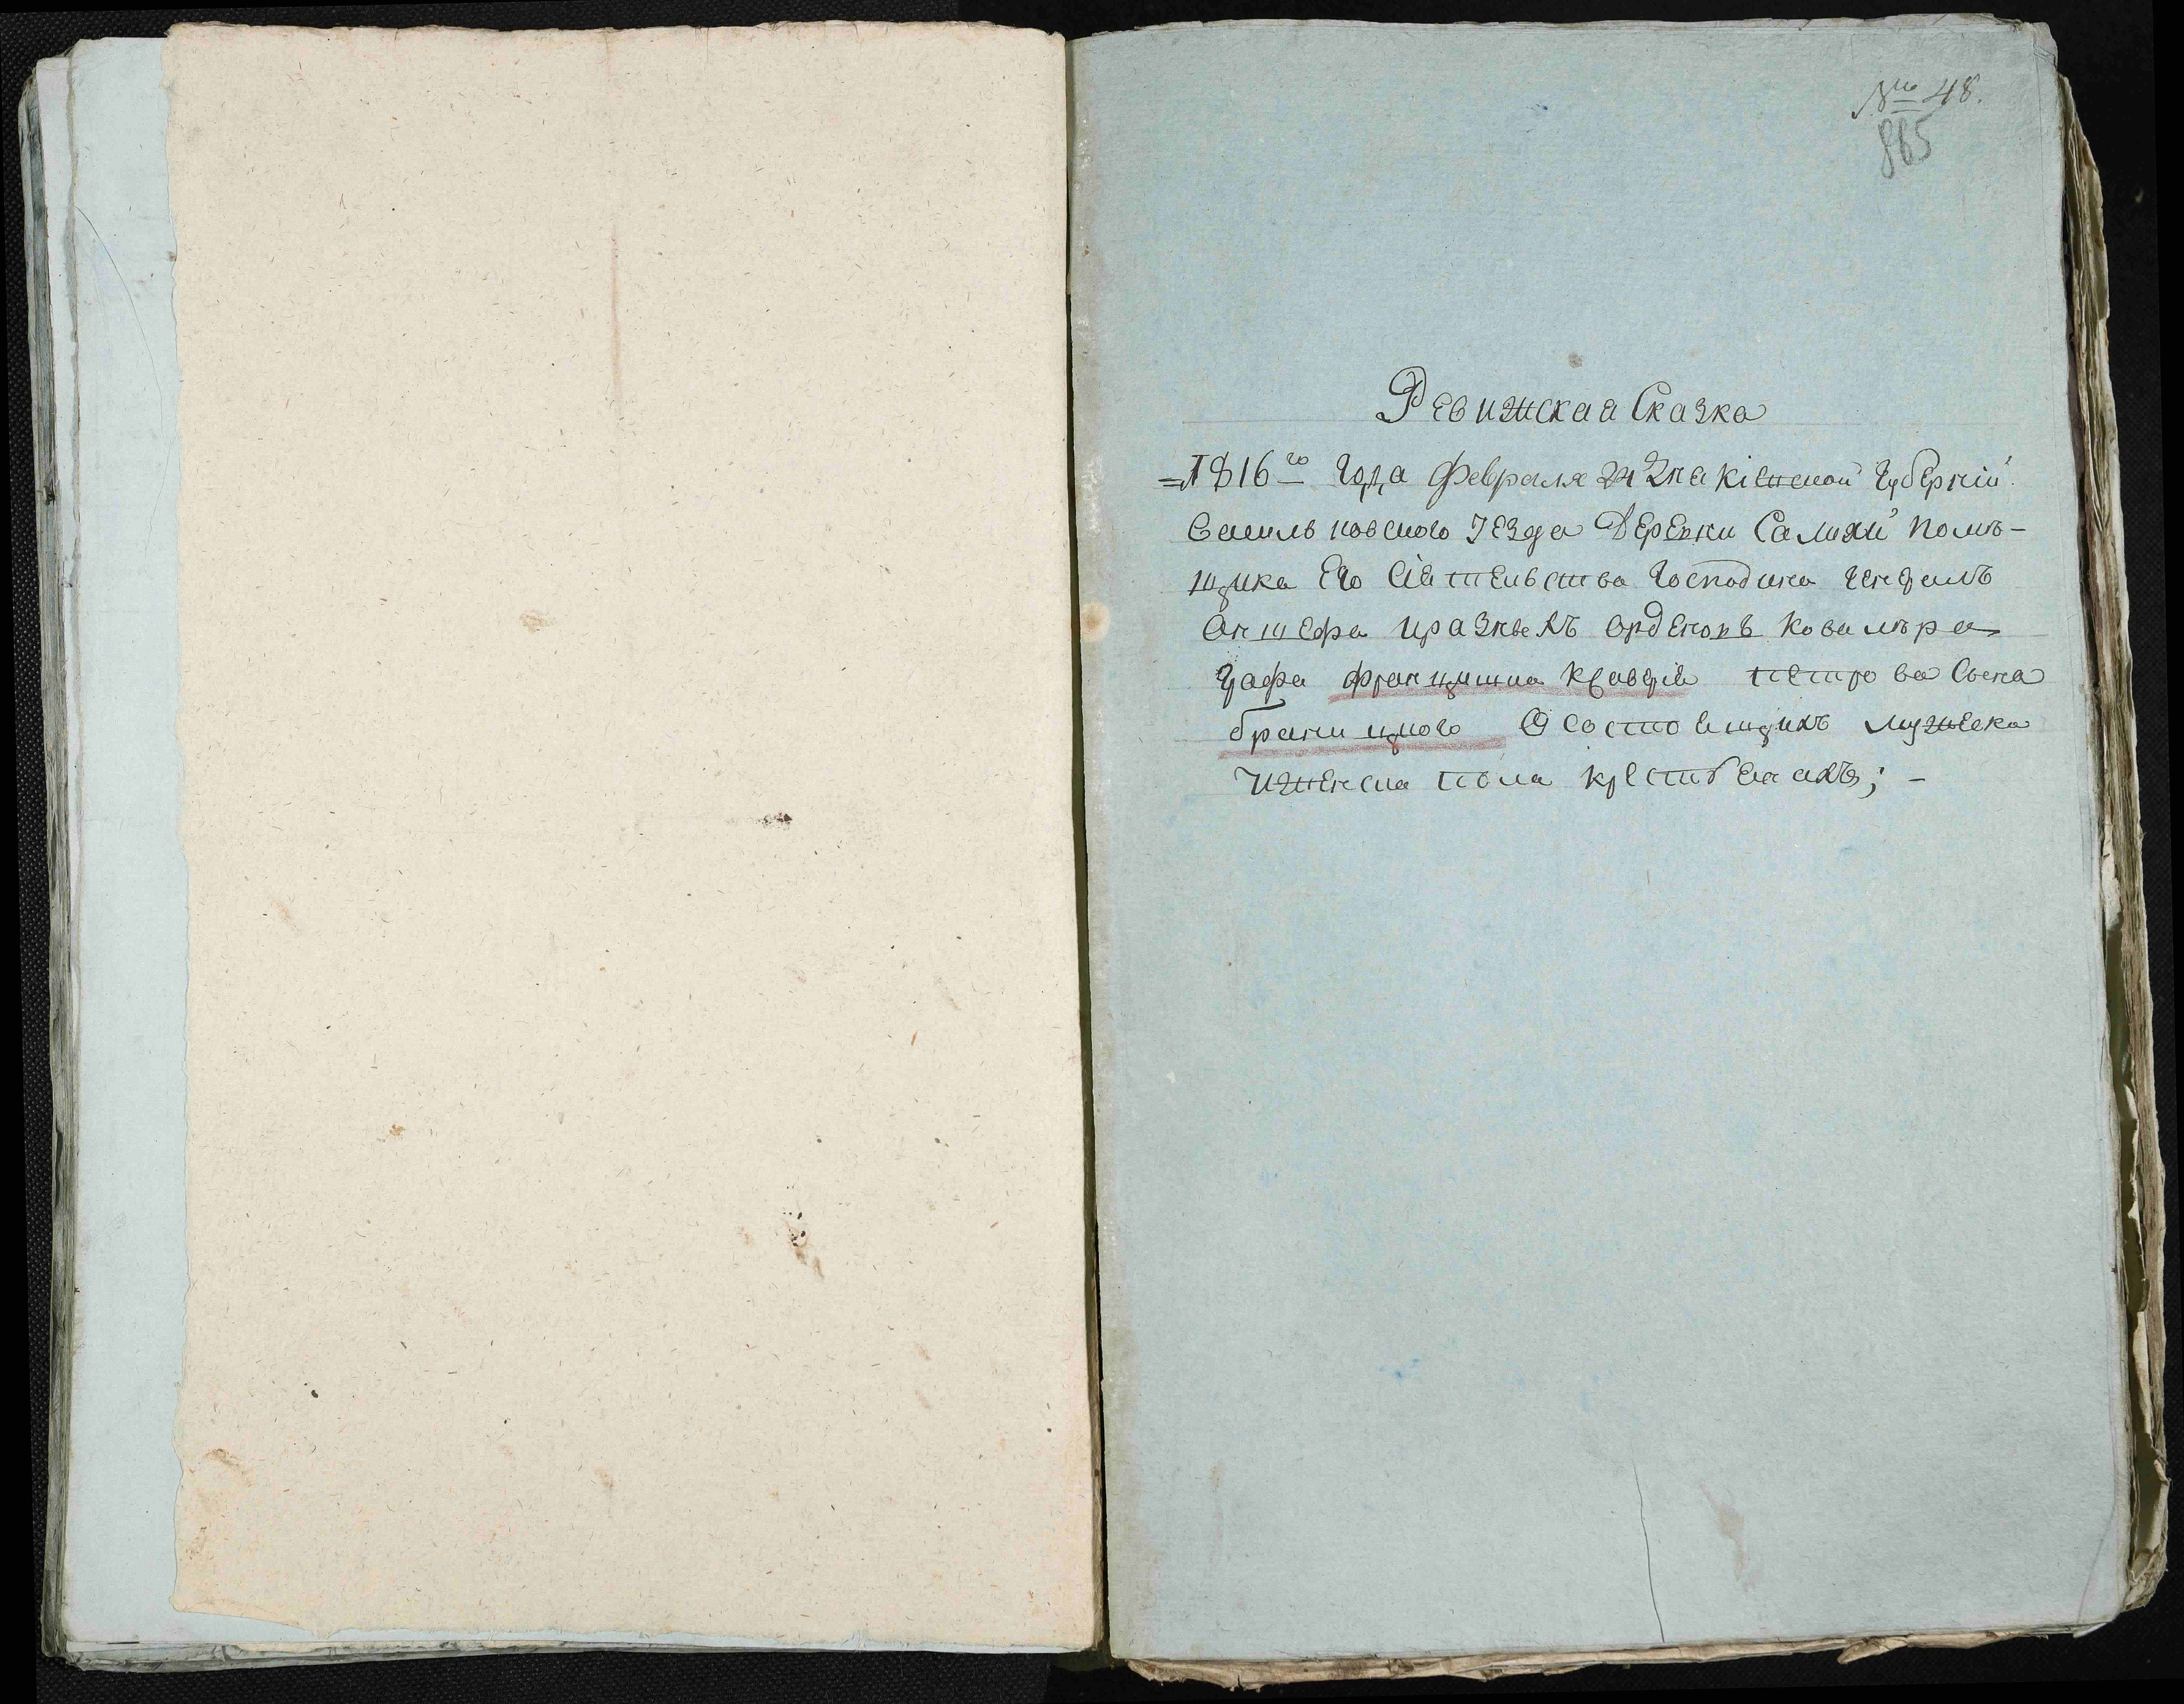 № 48.
865
Ревижская Сказка
1816го Года Февраля 24 Дня Кіевской Губерніи
Васильковского Уезда Деревни Салихи Помъ-
щика Его Сіятельства Господина Генералъ
Аншефа Иразныхъ Орденовъ Ковалъра
Графа Францишка Ксаверія Петрова Сына
браницкого О состоящихъ Мужеска
Иженска пола крестьянахъ; -